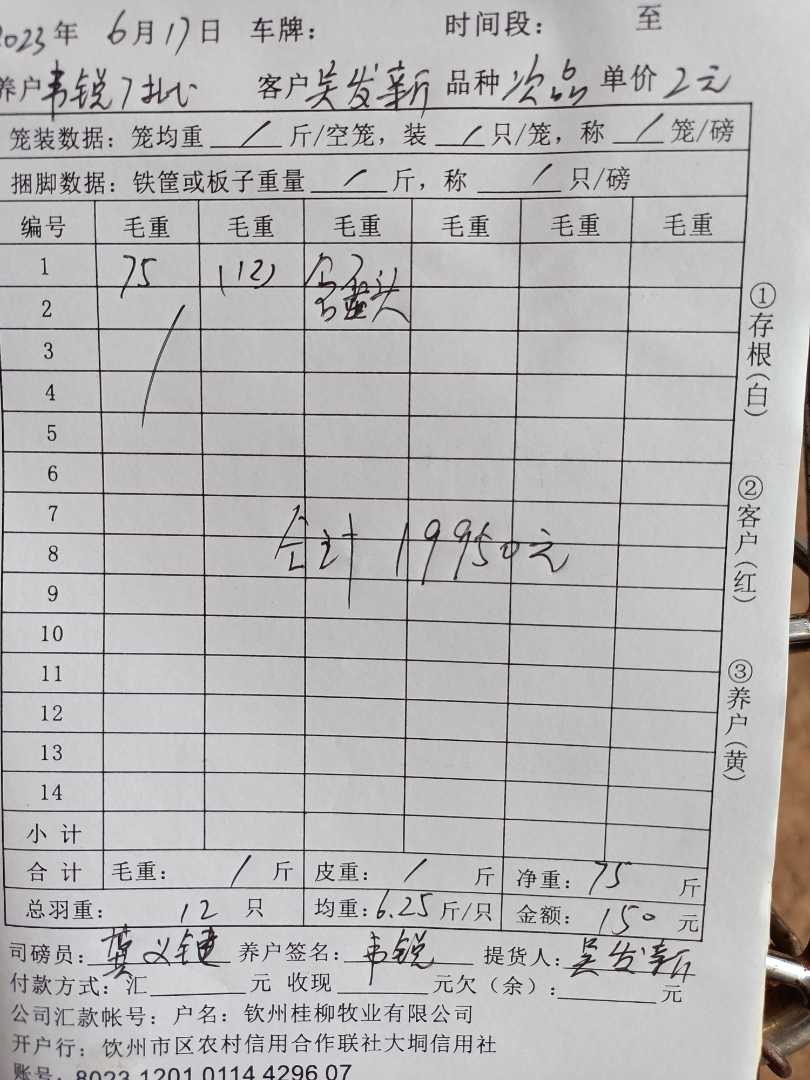 2023年 6月17日 车牌： 时间段： 至
养户韦锐7批 客户吴发新 品种次品 单价2元
笼装数据：笼均重 / 斤/空笼，装 / 只/笼，称 / 笼/磅
捆脚数据：铁筐或板子重量 / 斤，称 / 只/磅
编号 毛重 毛重 毛重 毛重 毛重 毛重
1 75 (12)
2
3
4
5
6
7
8 合计 19950元
9
10
11
12
13
14
小计
合计 毛重： / 斤 皮重： / 斤 净重：75 斤
总羽重： 12 只 均重：6.25斤/只 金额：150元
司磅员：龚义键 养户签名：韦锐 提货人：吴发新
付款方式：汇 元 收现 元欠（余）： 元
公司汇款帐号：户名：钦州桂柳牧业有限公司
开户行：饮州市区农村信用合作联社大垌信用社
账号：8023 1201 0114 4296 07
①存根（白）
②客户（红）
③养户（黄）